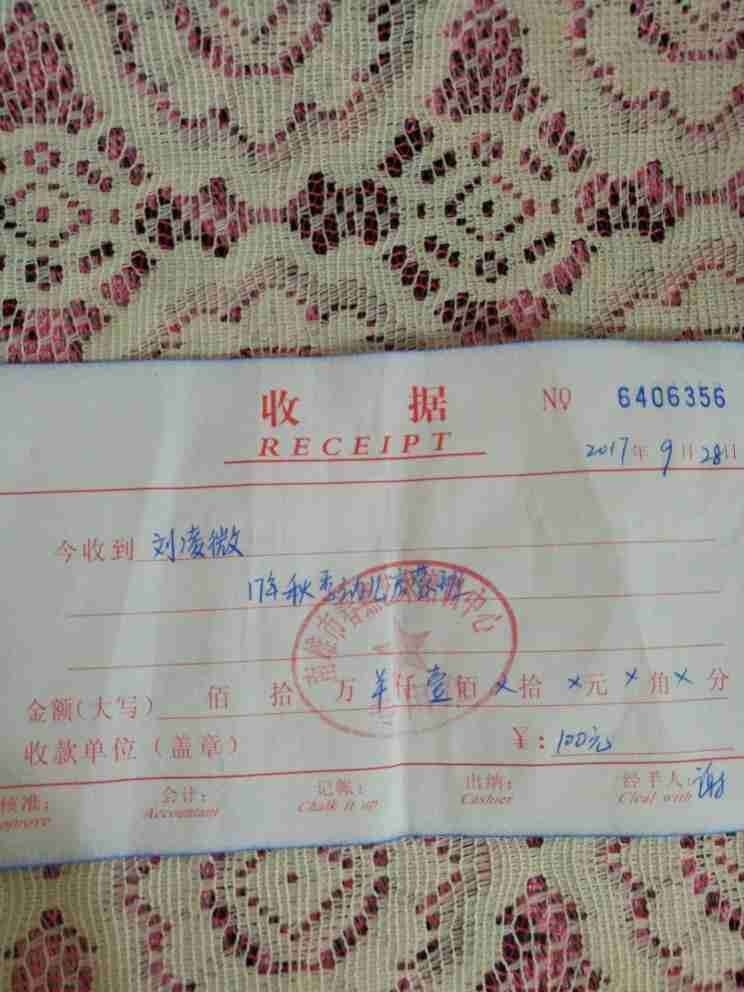 收 据
NO 6406356
RECEIPT
2017年9月28日
今收到 刘凌微
17年秋季幼儿启蒙班
金额(大写) 佰 拾 万 羊仟壹佰×拾×元×角×分
收款单位(盖章) ¥:100元
核准: 会计: 记帐: 出纳: 经手人:谢
pprove Accountant Chalk it up Cashier Cleal with